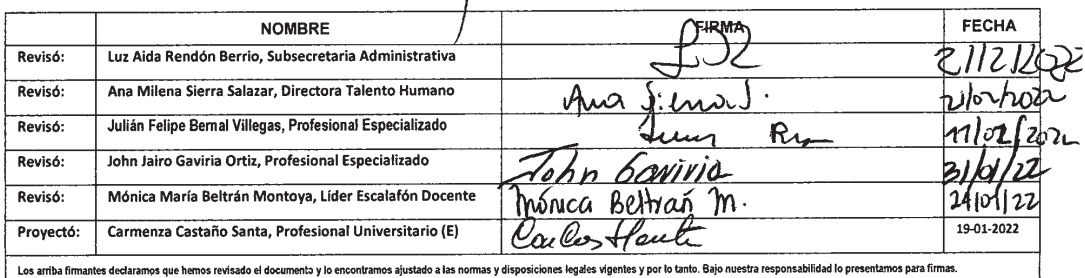 NOMBRE FIRMA FECHA
Revisó: Luz Aida Rendón Berrio, Subsecretaria Administrativa 2/12/2022
Revisó: Ana Milena Sierra Salazar, Directora Talento Humano Ana Sierra S. 21/02/2022
Revisó: Julián Felipe Bernal Villegas, Profesional Especializado 11/02/2022
Revisó: John Jairo Gaviria Ortiz, Profesional Especializado John Gaviria 31/01/22
Revisó: Mónica María Beltrán Montoya, Líder Escalafón Docente Mónica Beltrán M. 24/01/22
Proyectó: Carmenza Castaño Santa, Profesional Universitario (E) 19-01-2022
Los arriba firmantes declaramos que hemos revisado el documento y lo encontramos ajustado a las normas y disposiciones legales vigentes y por lo tanto. Bajo nuestra responsabilidad lo presentamos para firmas.